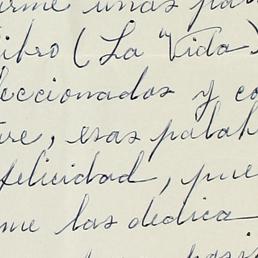 irme unas pa
libro (La "Vida"
leccionados y co
re, esas palab
felicidad, pue
me las dedica